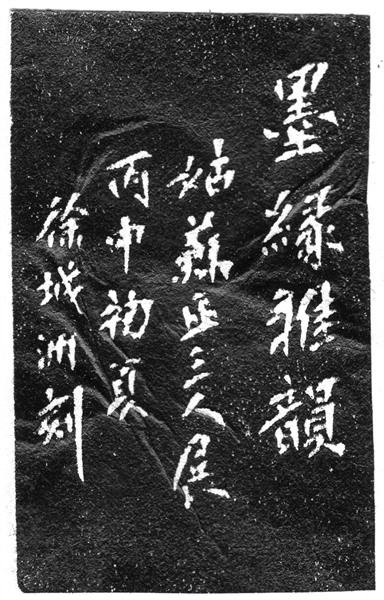 墨缘雅韻
姑蘇正三人展
丙申初夏
徐城洲刻